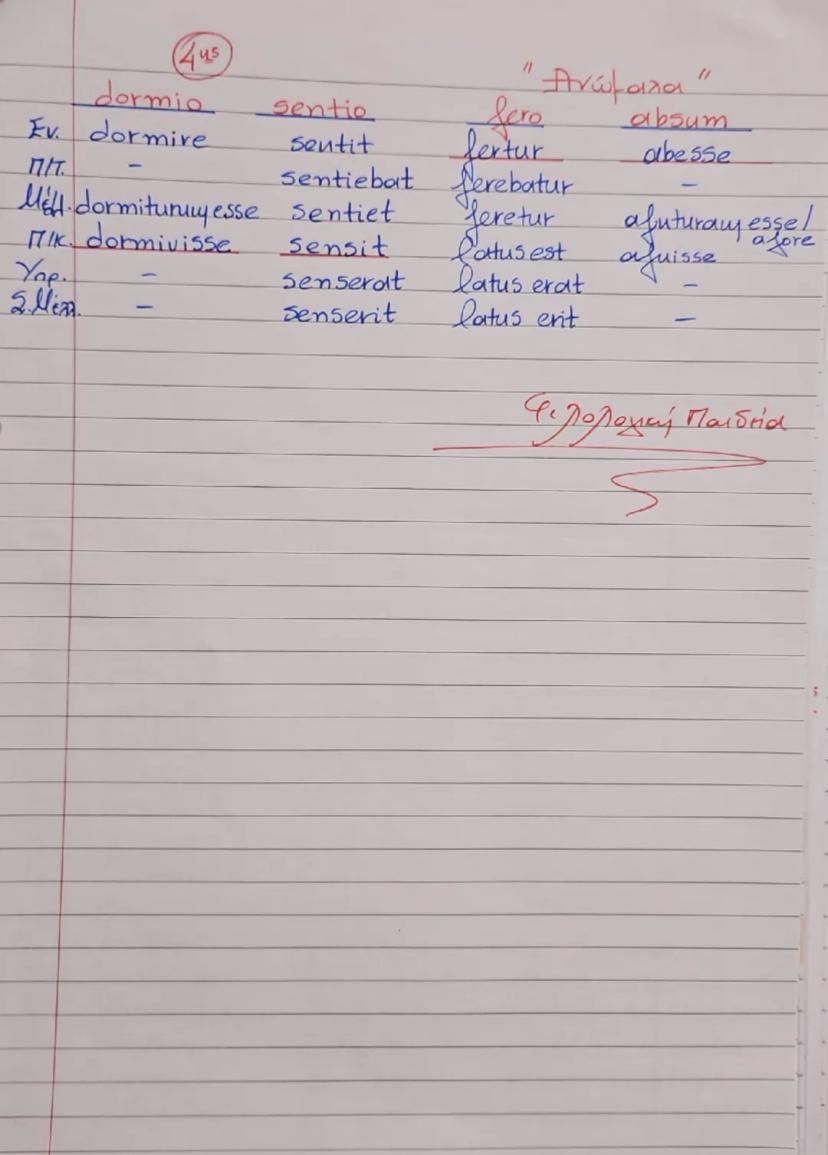 4ης "Ανώμαλα"
dormio sentio fero absum
Εν. dormire sentit fertur abesse
Π/Τ. - sentiebat ferebatur -
Μέλλ. dormiturum esse sentiet feretur afuturam esse/
afore
Π/Κ. dormivisse sensit latus est afuisse
Υπρ. - senserat latus erat -
Σ.Μέλλ. - senserit latus erit -
Φιλολογική Παιδεία